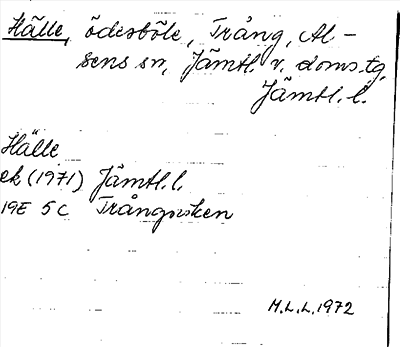 Hälle, ödesböle, Trång, Al-
sens sn, Jämtl. v. doms.tg,
Jämtl. l.
Hälle
ek (1971) Jämtl. l.
19E 5C Trångviken
M.L.L. 1972